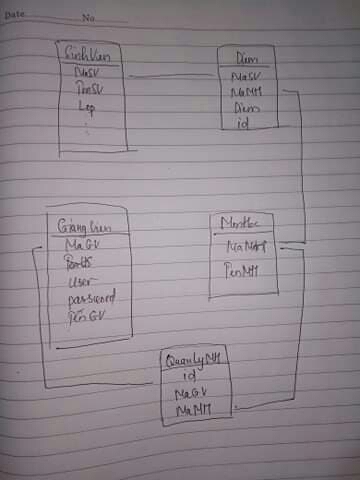 Date
No
SinhVien
MaSV
TenSV
Lop
Diem
MaSV
MaMH
Diem
id
GiangVien
MaGV
User
password
TenGV
MonHoc
MaMH
TenMH
QuanLyMH
id
MaGV
MaMH